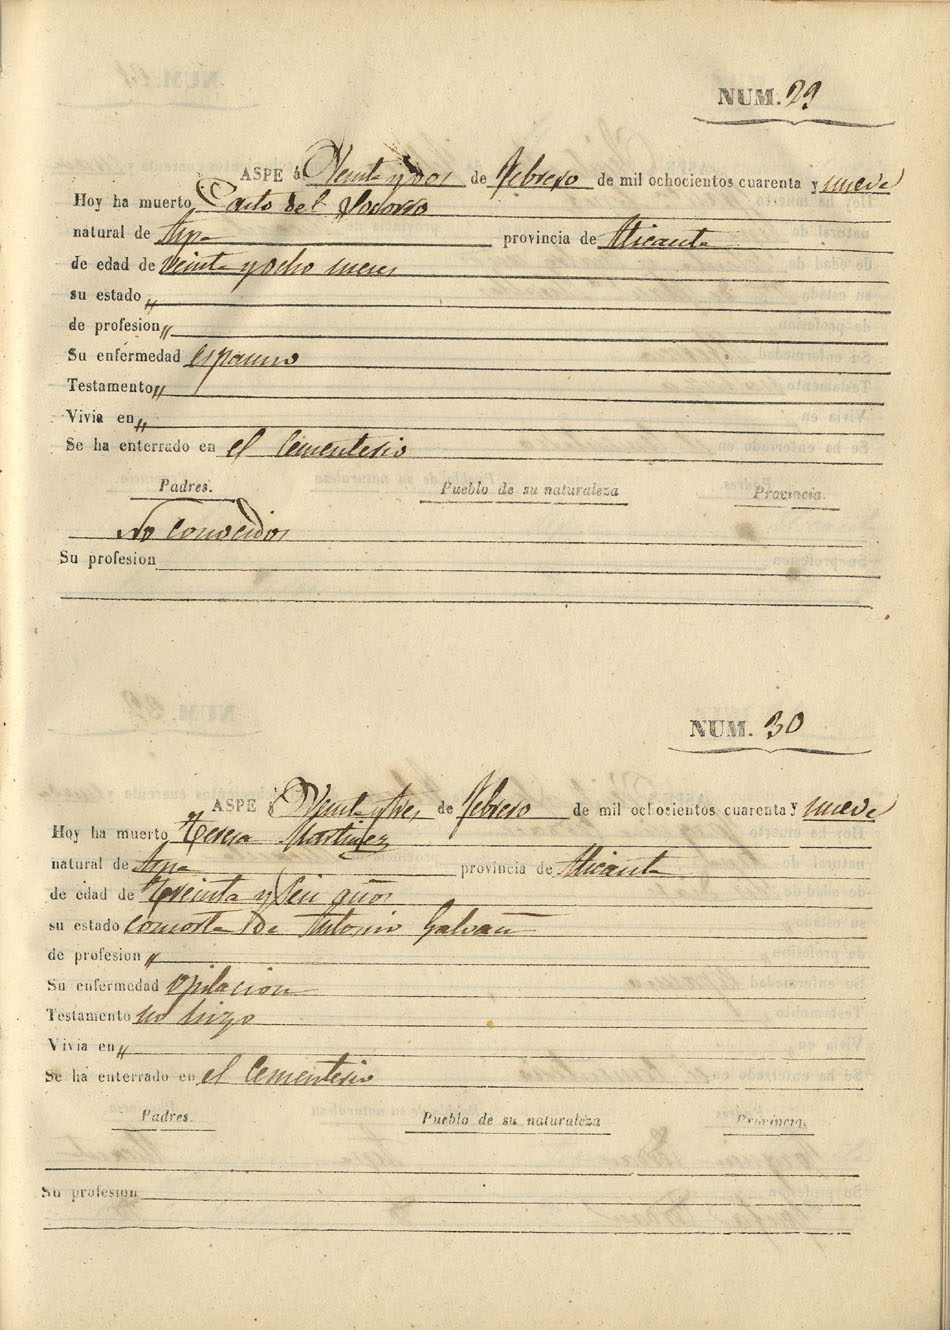 NUM. 29
ASPE á Veinte y dos de Febrero de mil ochocientos cuarenta y nueve
Hoy ha muerto del Socorro
natural de Aspe provincia de Alicante
de edad de veinte y ocho meses
su estado "
de profesion "
Su enfermedad espasmo
Testamento "
Vivia en "
Se ha enterrado en el Cementerio
Padres. Pueblo de su naturaleza Provincia.
No conocidos
Su profesion
NUM. 30
ASPE á Veinte y tres de Febrero de mil ochocientos cuarenta y nueve
Hoy ha muerto Teresa Martinez
natural de Aspe provincia de Alicante
de edad de Treinta y Seis años
su estado consorte de Antonio Galvañ
de profesion "
Su enfermedad opilacion
Testamento no hizo
Vivia en "
Se ha enterrado en el Cementerio
Padres. Pueblo de su naturaleza Provincia.
Su profesion